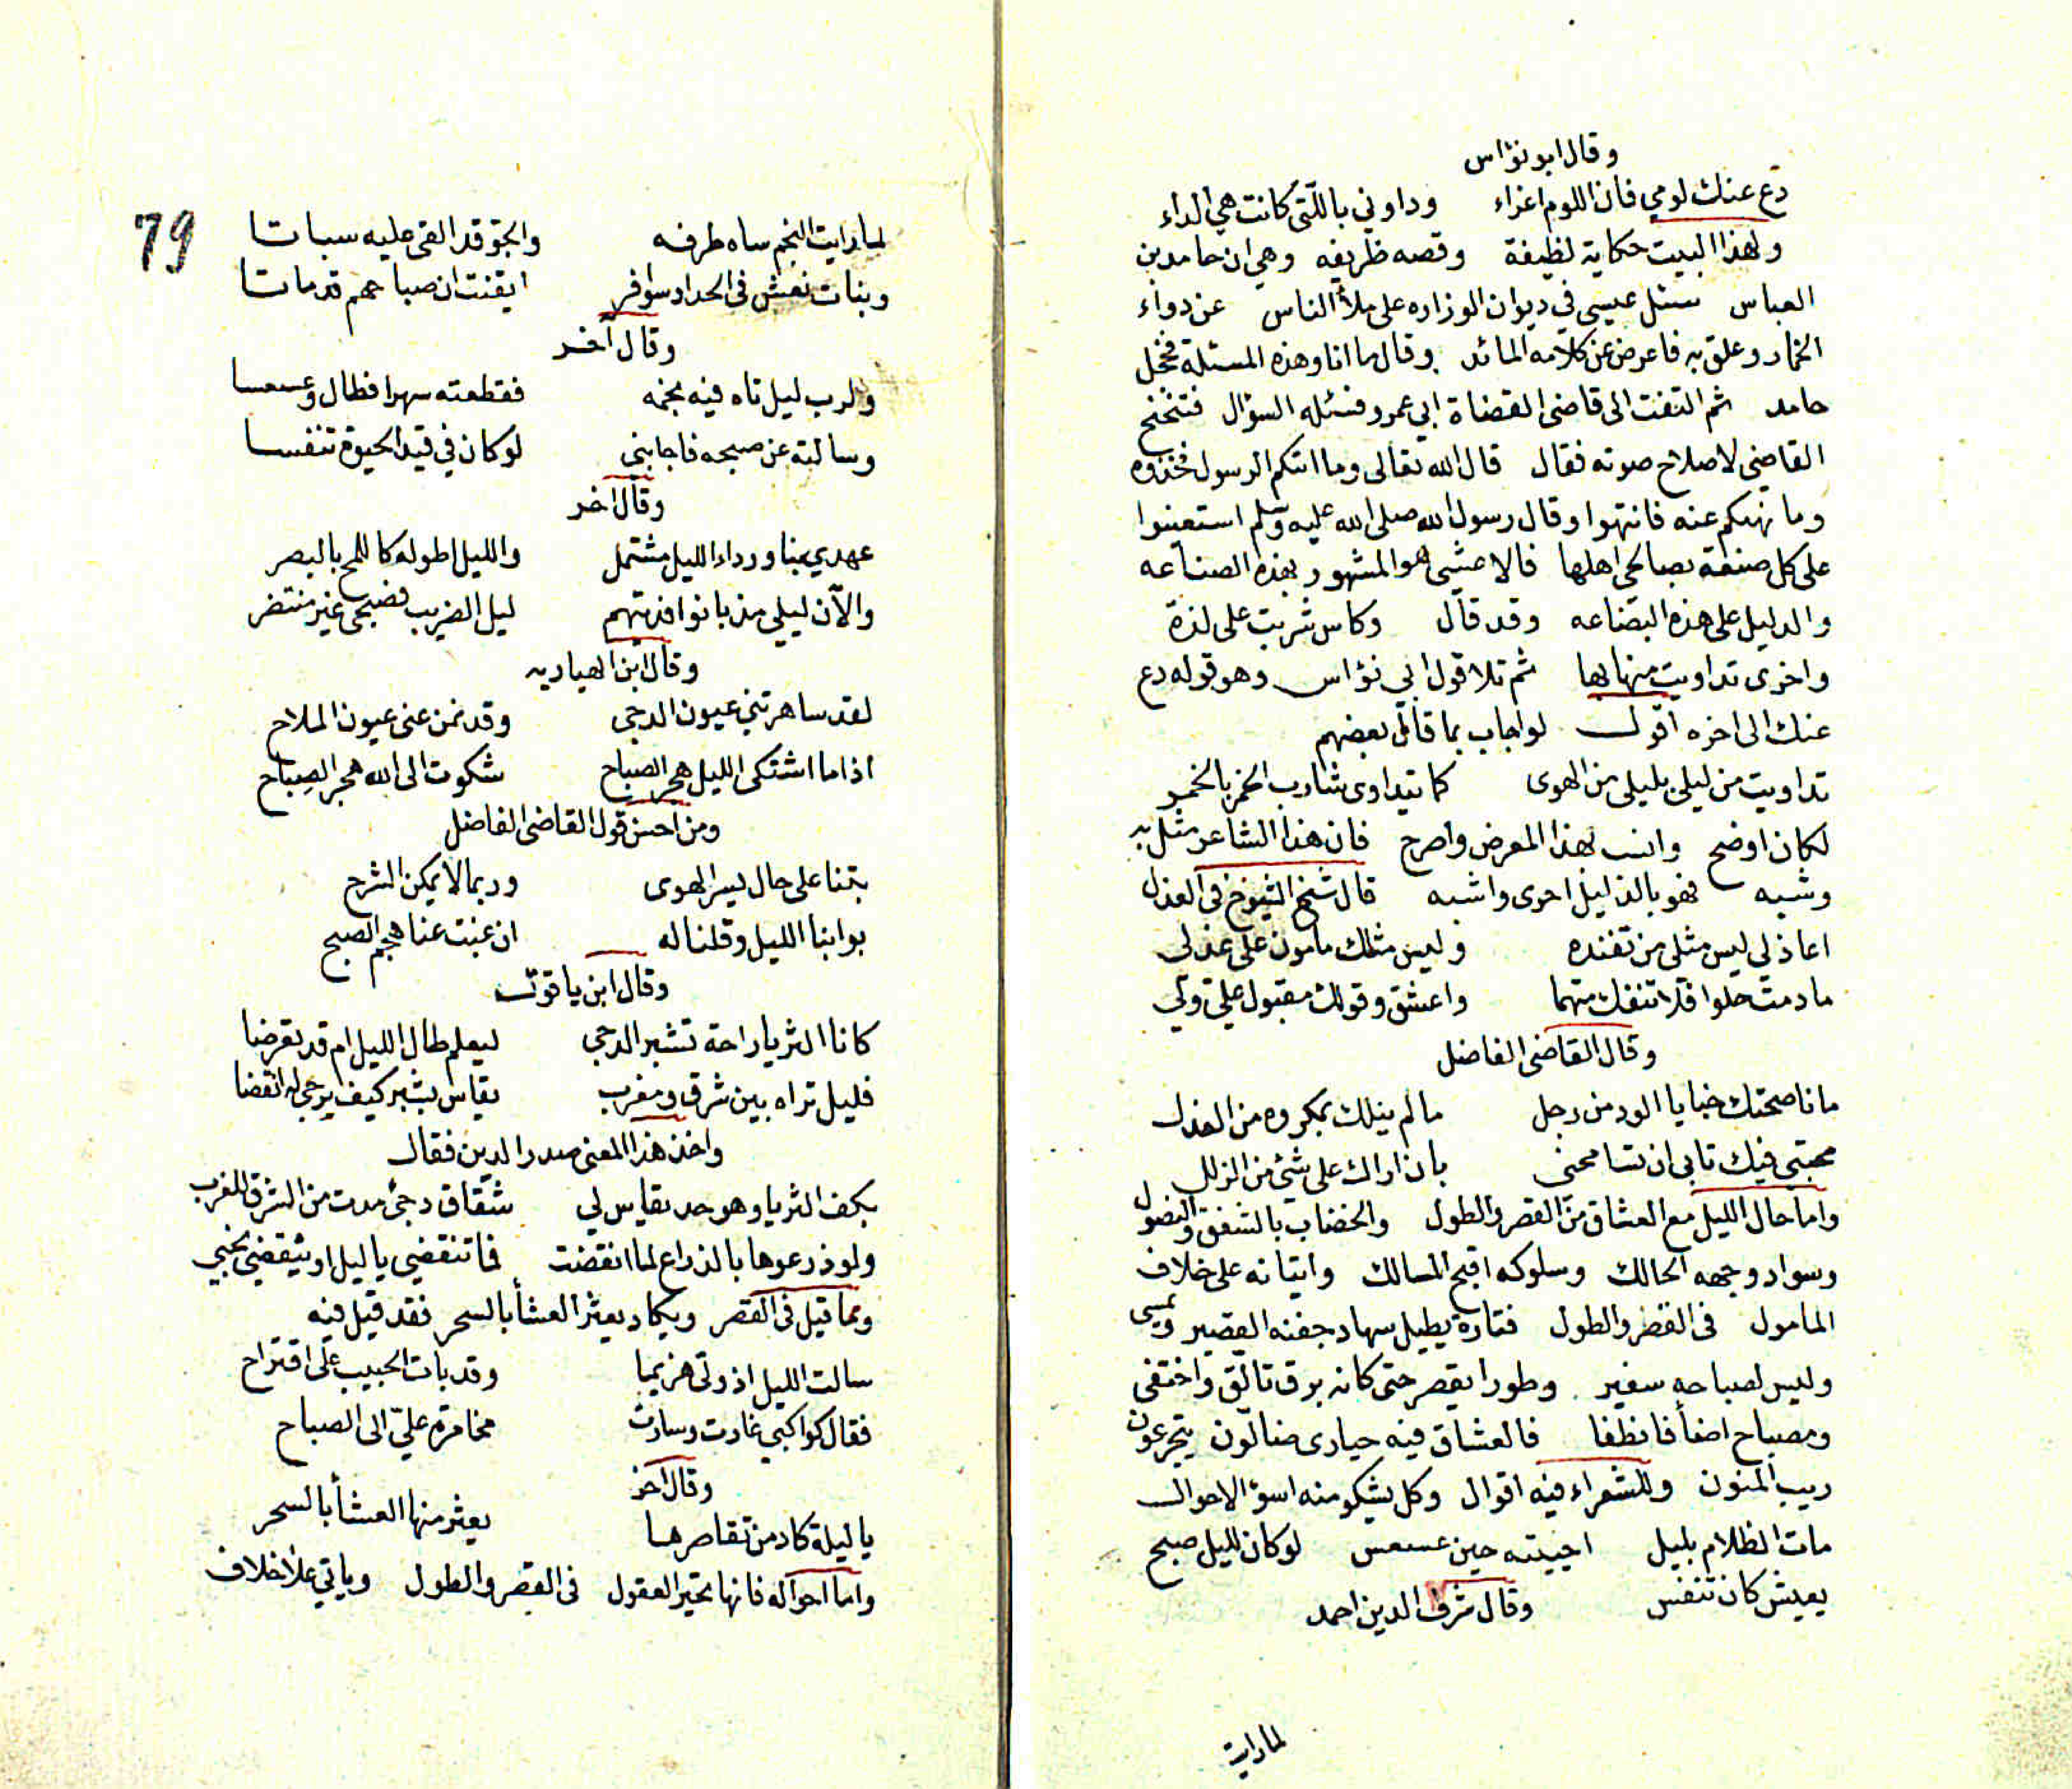 وقال ابو نؤاس
دع عنك لومي فان اللوم اغراء وداوني باللتي كانت هي الداء
ولهذا البيت حكاية لطيفة وقصه ظريفه وهي ان حامد بن
العباس سئل عيسى في ديوان الوزاره على ملأ الناس عن دواء
الخمار وعلق به فاعرض عن كلامه المائد وقال ما انا وهذه المسئلة فخجل
حامد ثم التفت الى قاضى القضاة ابي عمرو فسئله السؤال فتنحنح
القاضي لاصلاح صوته فقال قال الله تعالى وما اتكم الرسول فخذوه
وما نهىكم عنه فانتهوا وقال رسول الله صلى الله عليه وسلم استعينوا
على كل صنعة بصالحي اهلها فالاعشى هو المشهور بهذه الصناعه
والدليل على هذه البضاعه وقد قال وكاس شربت على لذة
واخرى تداويت منها بها ثم تلا قول ابي نؤاس وهو قوله دع
عنك الى اخره اقول لو اجاب بما قال بعضهم
تداويت من ليلى بليلى من الهوى كما يتداوى شارب الخمر بالخمر
لكان اوضح وانسب لهذا المعرض واصرح فان هذا الشاعر مثل به
وشبه فهو بالذليل احرى واشبه قال شيخ الشيوخ في العذل
اعاذلي ليس مثلي من تفنده وليس مثلك مامون على عذلى
ما دمت خلوا فلا تنفك متهما واعشق وقولك مقبول علي ولي
وقال القاضى الفاضل
ما ناصحتك خبايا الود من رجل ما لم ينلك بمكروه من العذل
محبتي فيك تابى ان تسامحنى بان اراك على شئ من الزلل
واما حال الليل مع العشاق من القصر والطول والخضاب بالشفق والنصول
وسواد وجهه الحالك وسلوكه اقبح المسالك واتيانه على خلاف
المامول فى القصر والطول فتارة يطيل سهاد جفنه القصير ويمسى
وليس لصباحه سفير وطورا يقصر حتى كانه برق تالق واختفى
ومصباح اضأ فانطفا فالعشاق فيه حيارى ضالون يتجرعون
ريب المنون وللشعراء فيه اقوال وكل يشكو منه اسوء الاحوال
مات الظلام بليل احييته حين عسعس لو كان لليل صبح
يعيش كان تنفس وقال شرف الدين احمد
لما رايت
79
لما رايت النجم ساه طرفه والجو قد القى عليه سباتا
وبنات نعش في الحداد سوافر ايقنت ان صباحهم قد ماتا
وقال آخر
ولرب ليل تاه فيه نجمه فقطعته سهرا فطال وعسعسا
وسالته عن صبحه فاجابني لو كان في قيد الحيوة تنفسا
وقال اخر
عهدي بنا ورداء الليل مشتمل والليل اطوله كاللمح بالبصر
والآن ليلي مذ بانوا فديتهم ليل الضرير فصبحي غير منتضر
وقال ابن الهباريه
لقد ساهرتني عيون الدجى وقد نمن عنى عيون الملاح
اذا ما اشتكى الليل هجر الصباح شكوت الى الله هجر الصباح
ومن احسن قول القاضى الفاضل
بتنا على حال يسر الهوى وربما لا يمكن الشرح
بوابنا الليل وقلنا له ان غبت عنا هجم الصبح
وقال ابن ياقوت
كانا الثريا راحة تشبر الدجى ليعلم طال الليل ام قد تعرضا
فليل تراه بين شرق ومغرب يقاس بشبر كيف يرجى له انقضا
واخذ هذا المعنى صدر الدين فقال
بكف الثريا وهو حد يقاس لي شقاق دجى مدت من الشرق للغرب
ولو ذرعوها بالذراع لما انقضت فما تنقضي يا ليل او ينقضي نحبي
ومما قيل فى القصر ويكاد يعثر العشأ بالسحر فقد قيل فيه
سالت الليل اذ ولى هزيما وقد بات الحبيب على اقتراح
فقال كواكبي غارت وسارت مخامرة علي الى الصباح
وقال اخر
يا ليلة كاد من تقاصرها يعثر منها العشأ بالسحر
واما احواله فانها تحير العقول فى القصر والطول وياتي على خلاف